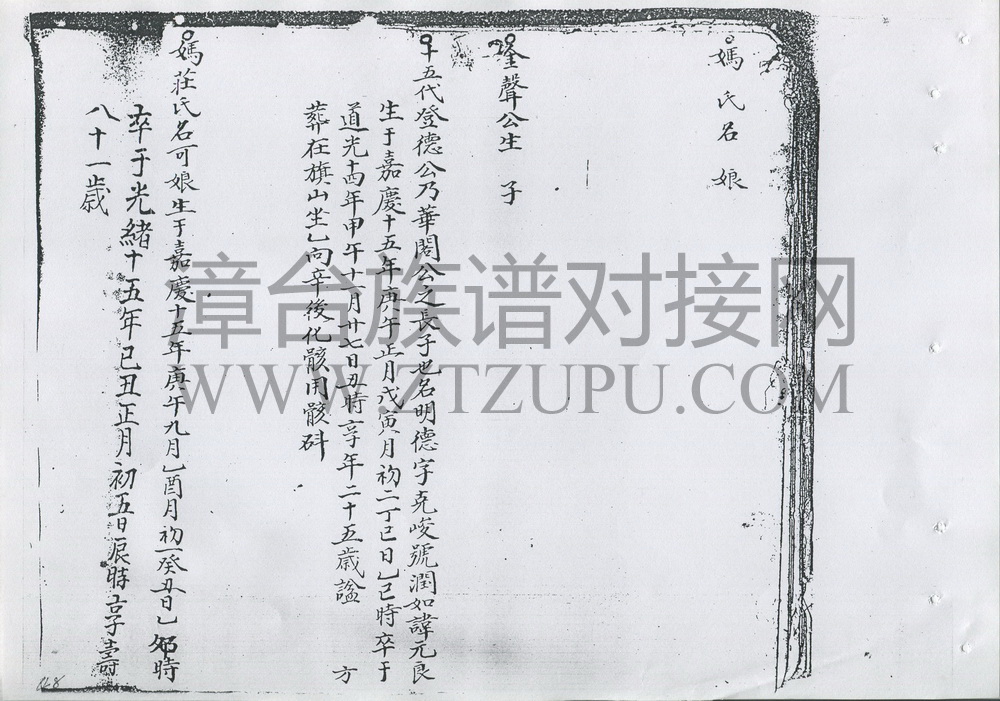 媽氏名娘
聲公生 子
十五代登德公乃華閣公之長子也名明德字克峻號潤如諱元良
生于嘉慶十五年庚午正月戊寅月初二丁巳日乙巳時卒于
道光十四年甲午十一月廿七日丑時享年二十五歲謚 方
葬在旗山坐乙向辛後化骸用骸
媽莊氏名可娘生于嘉慶十五年庚午九月乙酉月初一癸丑日乙卯時
卒于光緒十五年己丑正月初五日辰時享壽
八十一歲
章台族谱对接网
WWW.ZTZUPU.COM